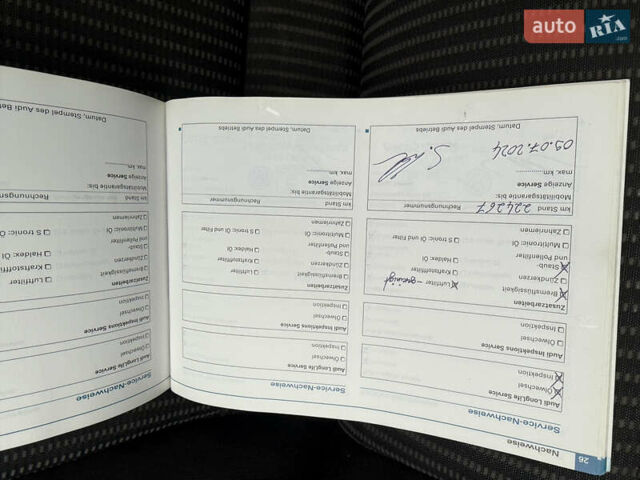 auto RIA .com
26
Nachweise
Service-Nachweise
Audi LongLife Service
Ölwechsel
Inspektion
Audi Inspektions Service
Inspektion
Zusatzarbeiten
Bremsflüssigkeit
Zündkerzen
Staub-
und Pollenfilter
Multitronic Öl
Zahnriemen
Luftfilter - gereinigt
Kraftstofffilter
Haldex Öl
S tronic: Öl und Filter
km Stand 224267 Rechnungsnummer
Mobilitätsgarantie bis:
Anzeige Service
max. km
05.07.2024
Datum, Stempel des Audi Betriebs
Service-Nachweise
Audi LongLife Service
Ölwechsel
Inspektion
Audi Inspektions Service
Ölwechsel
Inspektion
Zusatzarbeiten
Bremsflüssigkeit
Zündkerzen
Staub-
und Pollenfilter
Multitronic Öl
Zahnriemen
Luftfilter
Kraftstofffilter
Haldex Öl
S tronic: Öl und Filter
km Stand Rechnungsnummer
Mobilitätsgarantie bis:
Anzeige Service
max. km
Datum, Stempel des Audi Betriebs
Service-Nachweise
Audi LongLife Service
Ölwechsel
Inspektion
Audi Inspektions Service
Ölwechsel
Inspektion
Zusatzarbeiten
Bremsflüssigkeit
Zündkerzen
Staub-
und Pollenfilter
Multitronic Öl
Zahnriemen
Luftfilter
Kraftstofffilter
Haldex Öl
S tronic: Öl
km Stand Rechnungsnum
Mobilitätsgarantie bis:
Anzeige Service
max. km
Datum, Stempel des Audi Betr